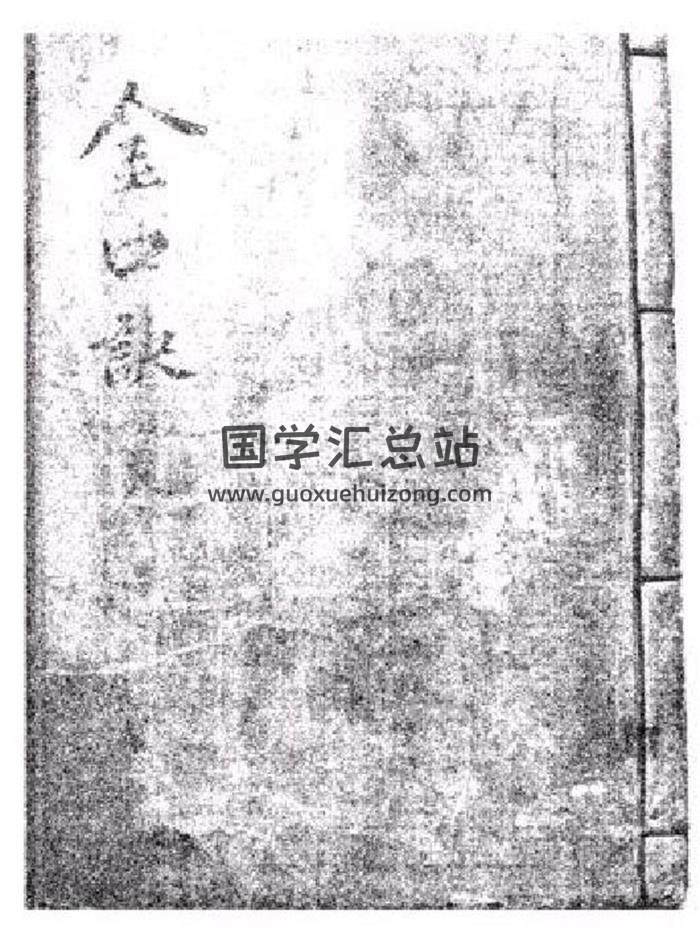 金口訣
国学汇总站
www.guoxuehuizong.com